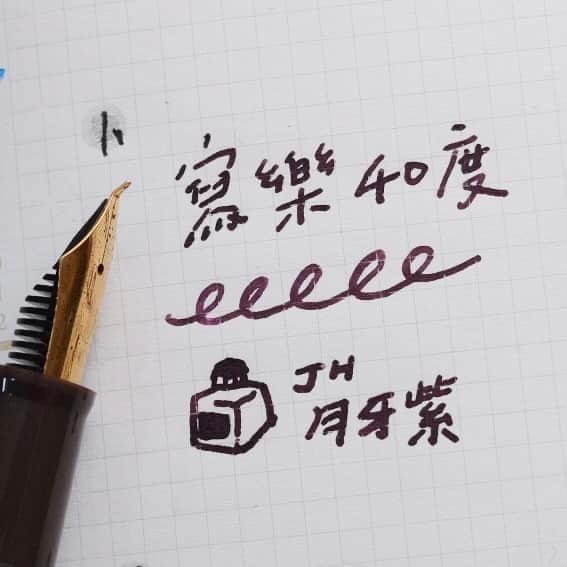 寫樂 40度
JH
月牙紫